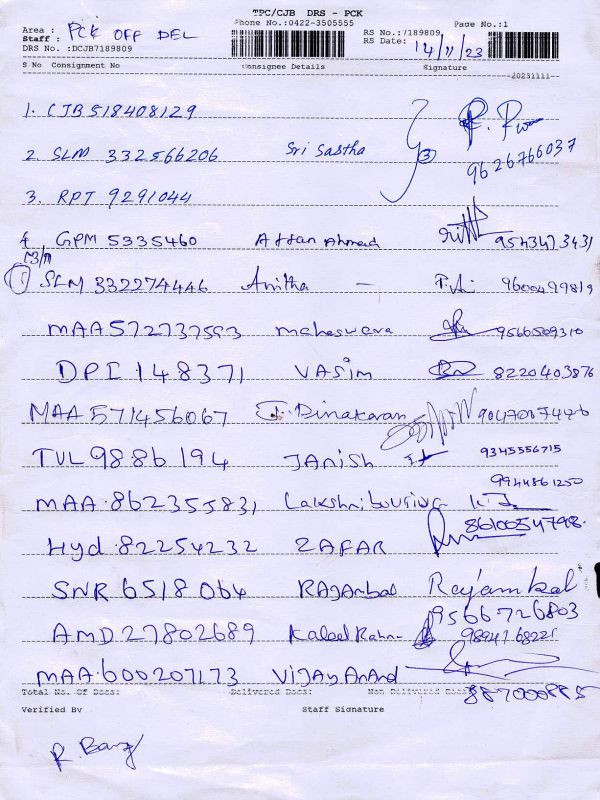 TPC/CJB DRS - PCK
Area : PCK OFF DEL Phone No.:0422-3505555 RS No.:7189809 Page No.:1
Staff : RS Date: 14/11/23
DRS No. :DCJB7189809
S No Consignment No Consignee Details Signature
20231111
1. CJB518408129
2. SLM 332566206 Sri Sastha 3 9626766037
3. RPT 9291044
4 GPM 5335460 Affan Ahmed 9543473431
13/11
1 SLM 332274446 Anitha - 9600499819
MAA572737593 Maheswara 9566509310
DPI 148371 VASIM 8220403876
MAA 571456067 J. Dinakaran
TUL 9886194 JANISH 9345556715
9944861250
MAA. 862355831
8610054798.
Hyd. 82254232 ZAFAR
SNR 6518064 RAJAMBAL Rajambal
9566726803
AMD 27802689 Kaleel Rahm
MAA.600207173 VIJAY ANAND
Total No. Of Docs: Delivered Docs: Non Delivered Docs:
Verified By Staff Signature